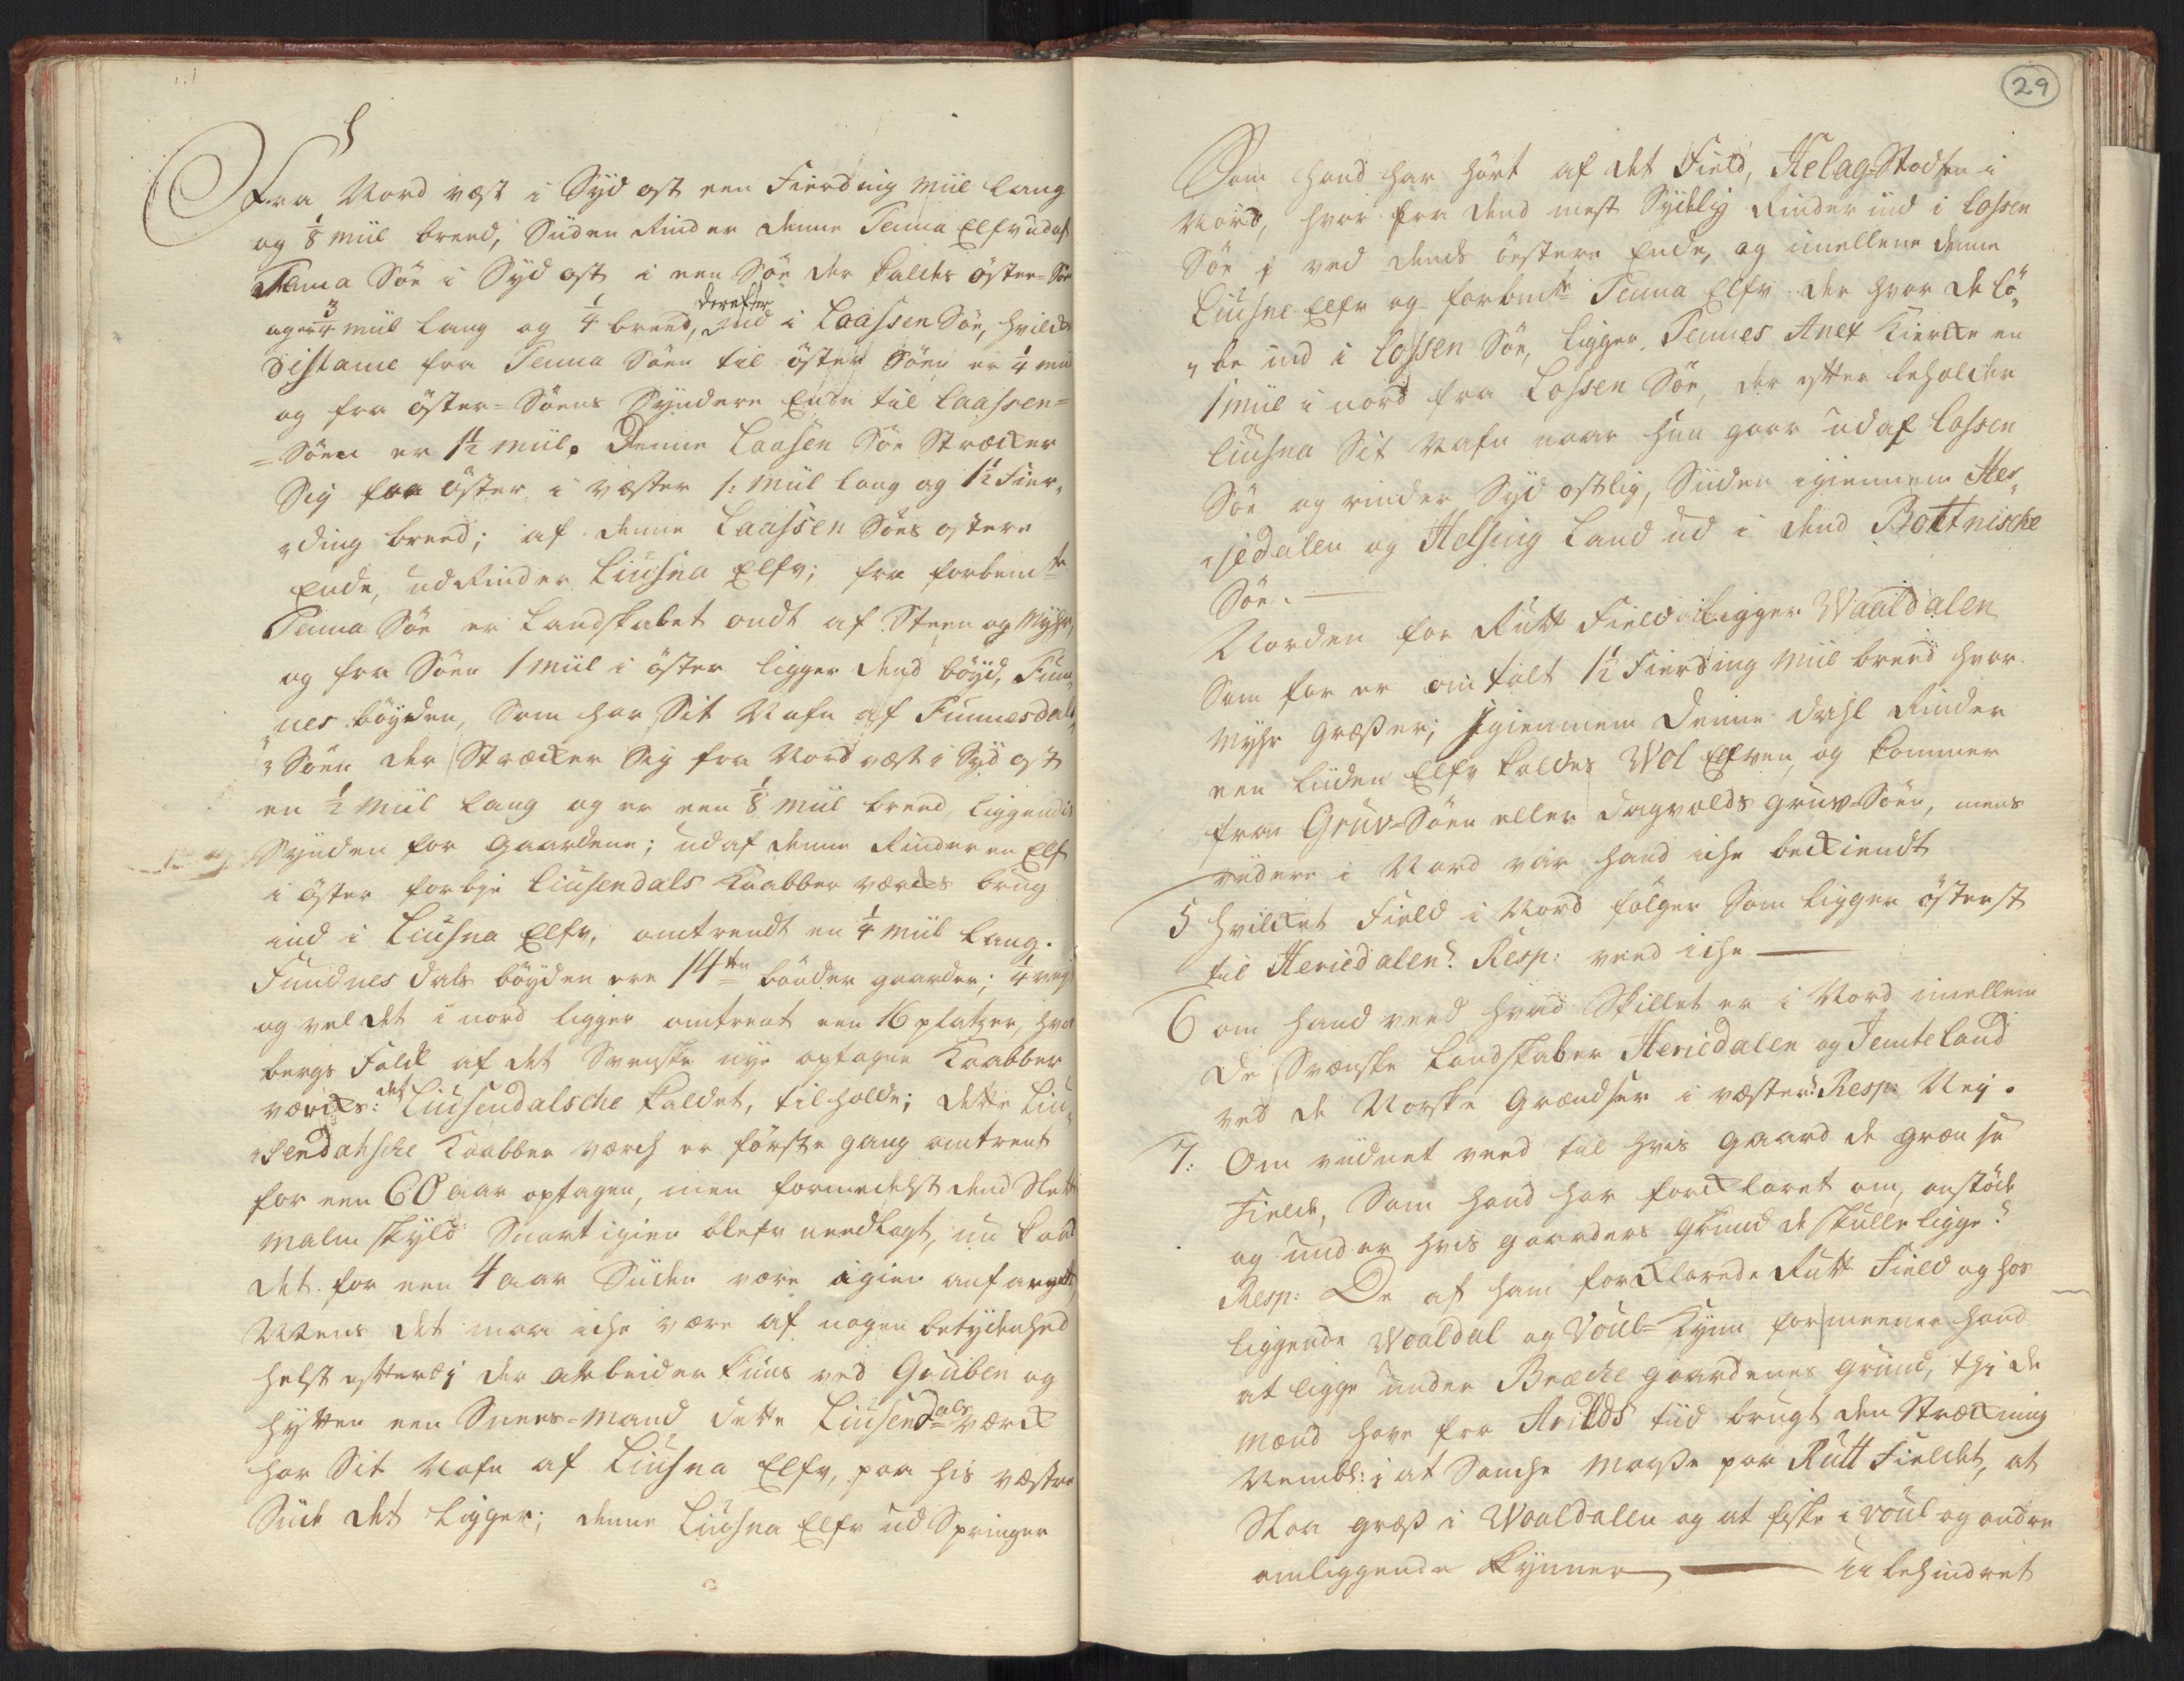 Fra Nord vest i Syd ost een Fierding Miil lang
og 1/8 Miil breed, Siiden Rinder denne Tenna Elfv ud af
Tenna Söe i Syd ost i een Söe der kaldes öster-Söe
3/4 Miil lang og 1/4 breed, derefter ind i Laassen Söe, hvilcken
Distance fra Tenna Söen til öster Söen er 1/4 Miil
og fra öster-Söens Syndere Ende til Laassen=
=Söen er 1 1/2 Miil. Denne Laasen Söe Strecker
Sig fra öster i vester 1: Miil lang og 1 1/2 Fier„
„ding breed; af denne Laassen Söes östere
Ende, udRinder Liusna Elfv; fra forbemte
Tenna Söe er Landskabet ondt af Steen og Myhr,
og fra Söen 1 Miil i öster ligger dend böyd, Fun„
„nes böyden, Som har Sit Nafn af Funnesdals
„Söen der Strecker Sig fra Nord vest i Syd ost
en 1/2 Miil lang og er een 1/8 Miil breed, liggendis
Synden for gaardene; ud af denne Rinder en Elf
i öster forbje Liusendals Kaabber værcks brug
ind i Liusna Elfv, omtrendt en 1/4 Miil lang.
Fundnes dals böyden ere 14ten bönder gaarder; 1/4 vej
og vel det i nord ligger omtrent een 16 platzer, hvor
bergs Folck af det Svenske nye optagne Kaabber
værcks: det Liusendalsche kaldet, tilholde; dette Liu„
„sendahsche Kaabber værch er förste gang omtrent
for een 60 aar optagen, men formedelst dend Slette
malm skyld Snart igien blefv needlagt, nu kand
det for een 4 aar Siiden være igien anfanget,
Mens det maa iche være af nogen betydenhed
helst efterdj der arbeider kuns ved Gruben og
hytten een Snees-Mand, dette Liusendals værck
har Sit Nafn af Liusna Elfv, paa his vestre
Siide det ligger; denne Liusna Elfv ud Springer
29
Som hand har hört af det Field, Helag-Stodsen i
Nord, hvor fra dend mest Sydlig Rinder ind i Lossen
Söe ved dends östere Ende, og imellem denne
Liusne Elfv og forbemte Tenna Elfv der hvor de lö„
„be ind i Lossen Söe, ligger Tennes Anex Kiercke en
1 Miil i nord fra Lossen Söe, der efter beholder
Liusna Sit Nafn naar hun gaar ud af Lossen
Söe og rinder Syd ostlig, Siiden igiennem Her„
„jedalen og Helsing Land ud i dend Bottnische
Söe.
Norden for Rutt Field ligger Waaldalen
Som for er om talt 1 1/2 Fierding Miil breed hvor
Myhr Græsser; Igiennem denne dahl Rinder
een liiden Elfv kaldes Wol Elfven, og kommer
fra Gruv-Söen eller Dagvolds gruv-Söen, mens
viidere i Nord var hand iche beckiendt
5 hvilcket Field i Nord fölger Som ligger österst
til Heriedalen? Resp: veed iche
6 om hand veed hvad Skillet er i Nord imellem
de Svenske Landskaber Heriedalen og Jemteland
ved de Norske Grendser i vester? Resp: Nej.
7: Om viidnet veed til hvis gaard de grense
Fielde, Som hand har forcklaret om, anstöde
og under hvis gaarders grund de skulle ligge?
Resp: De af ham forcklarede Rutt Field og hos
liggende Woaldal og Voul-Kynn formeener hand
at ligge under Bræche gaardenes grund, thj de
mænd have fra Arilds tiid brugt den Streckning
Nembl: i at Sanche Maasse paa Rutt Fieldet, at
Slaa græs i Woaldalen og at fiske i voul og andre
omliggende Kynner, ubehindret